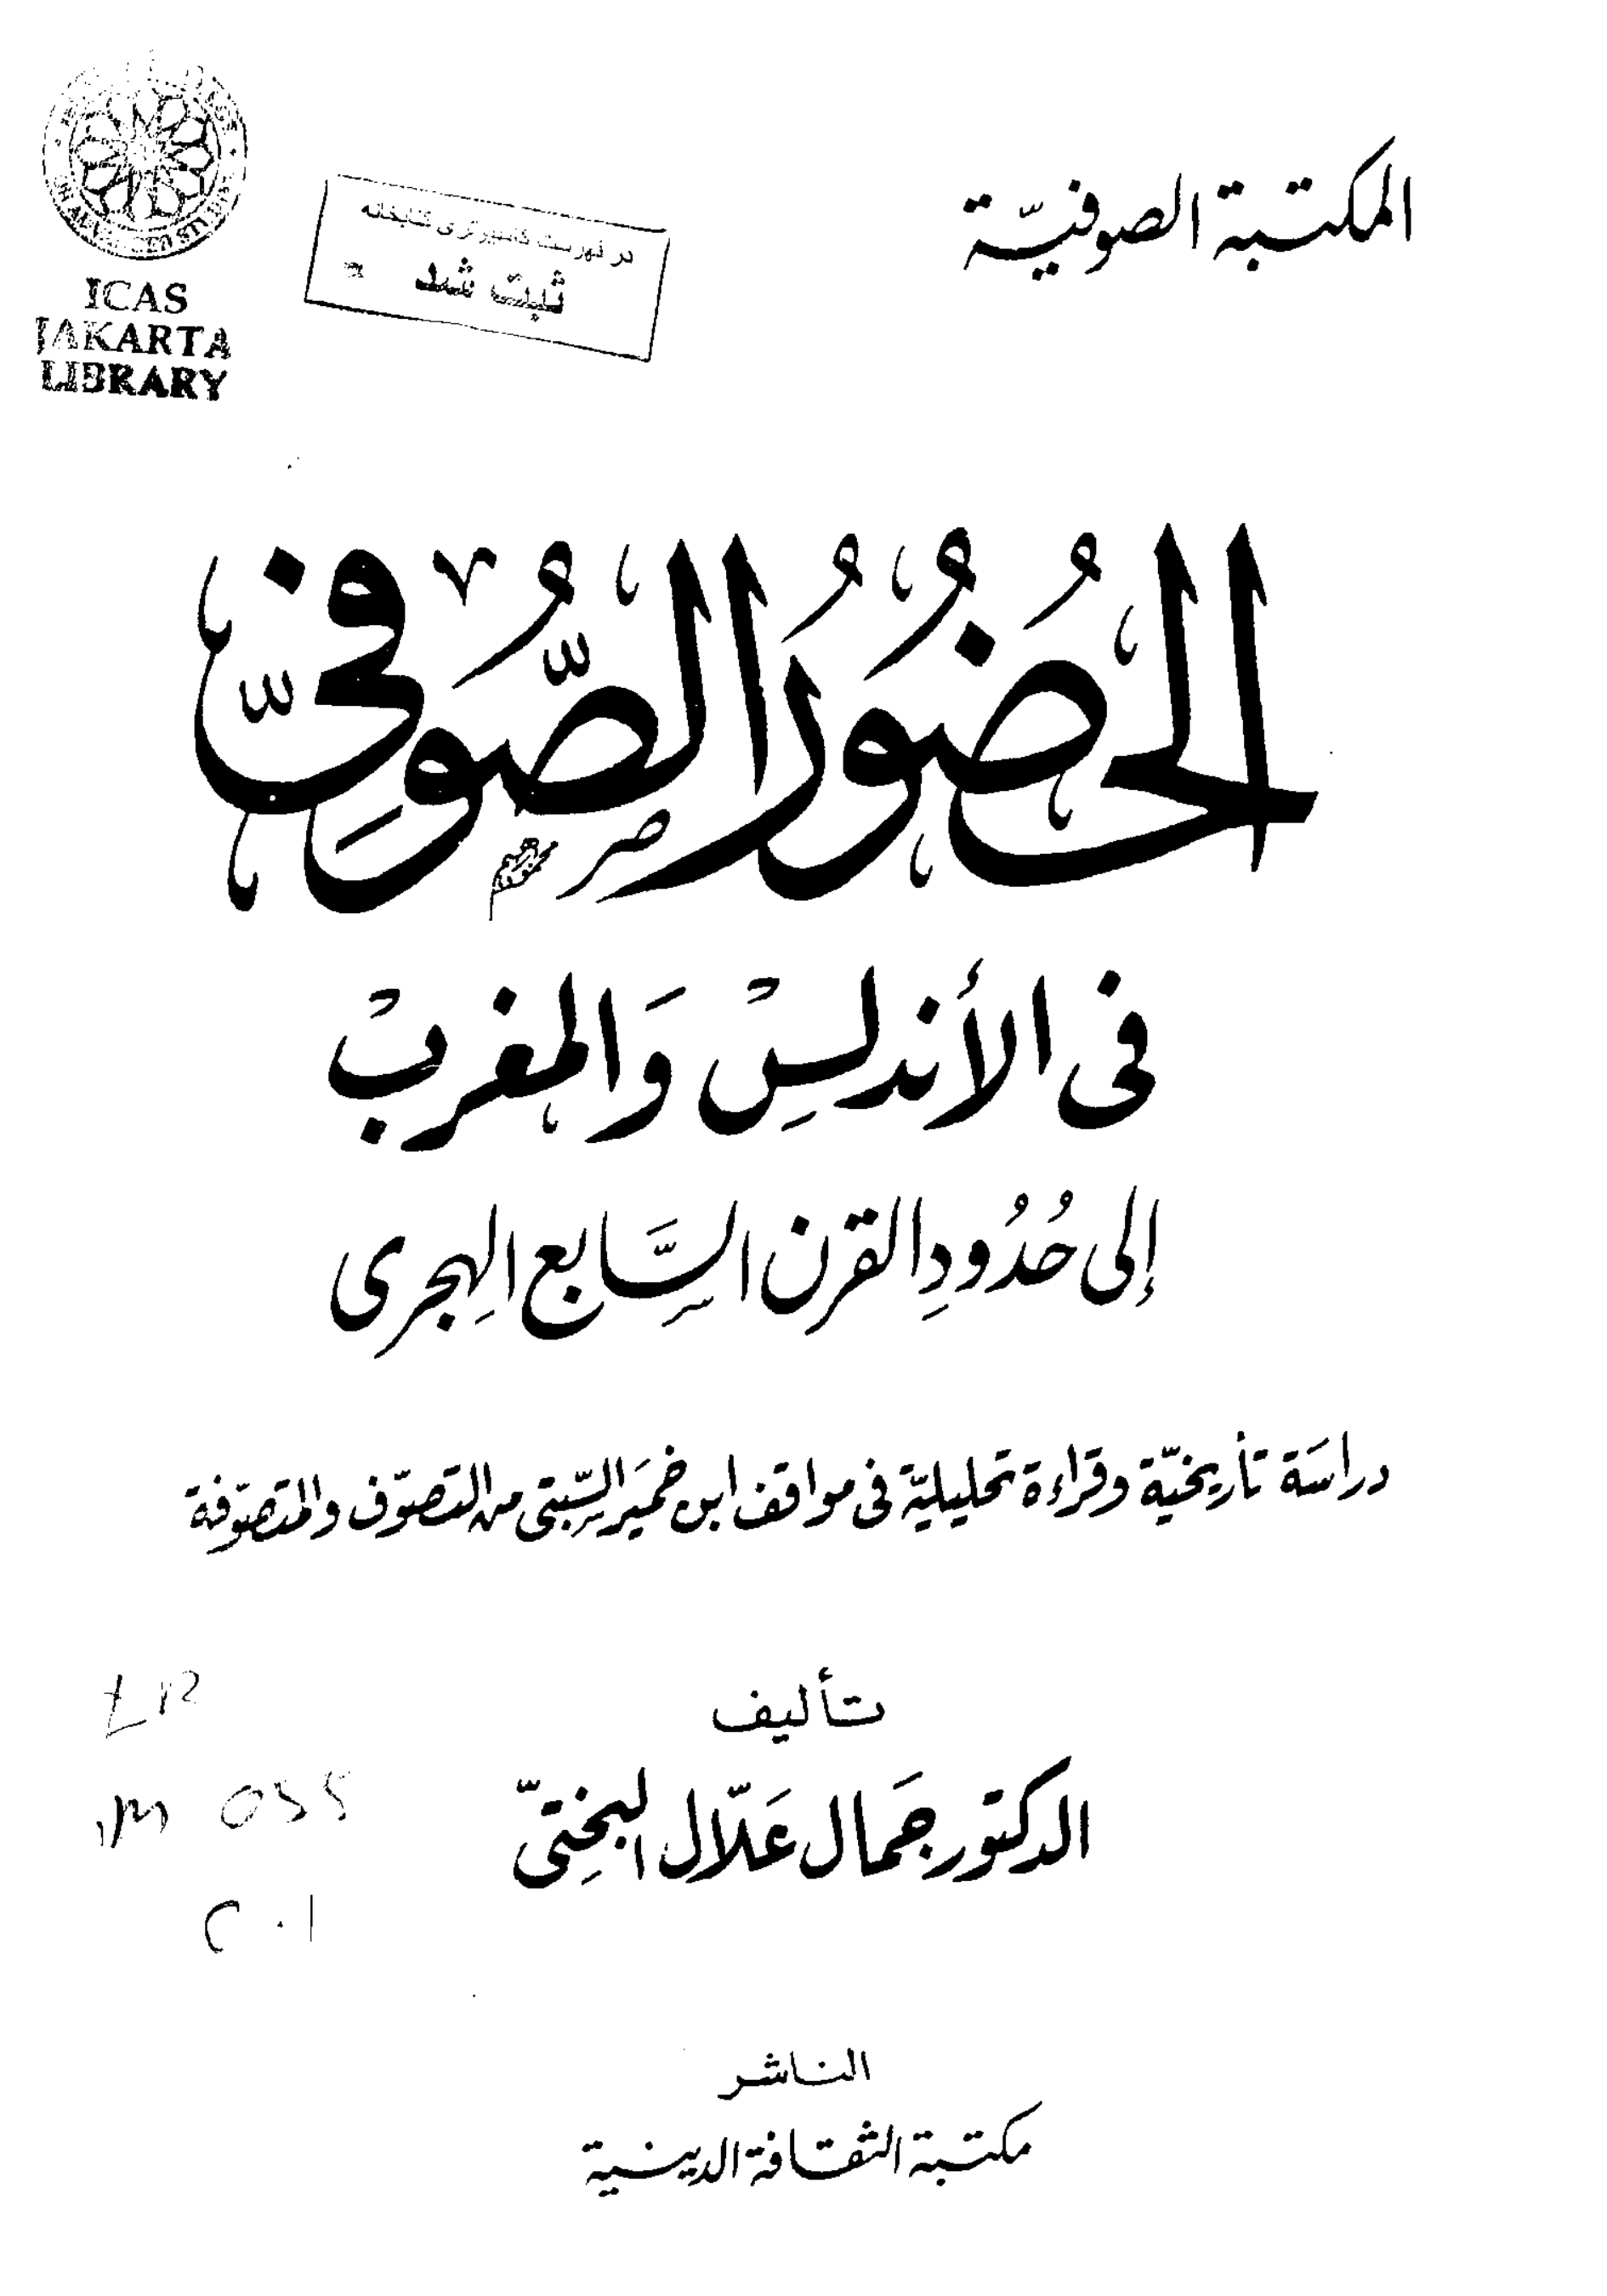 المكتبة الصوفيّة
ICAS
JAKARTA
LIBRARY
در فهرست كامپيوترى كتابخانه
ثبت شد
الحُضُورُ الصُّوفِيّ
فى الأندلسِ وَالمغربْ
إلى حُدُودِ القرن السَّابع الهِجرى
دراسَة تأريخيّة وقراءة تحليليّة فى مواقف ابن خميَر السِّبتى من التصوّف والمتصوّفة
تأليف
الدكتور جَمال عَلّال البخِتىّ
الناشر
مكتبة الثقافة الدينية